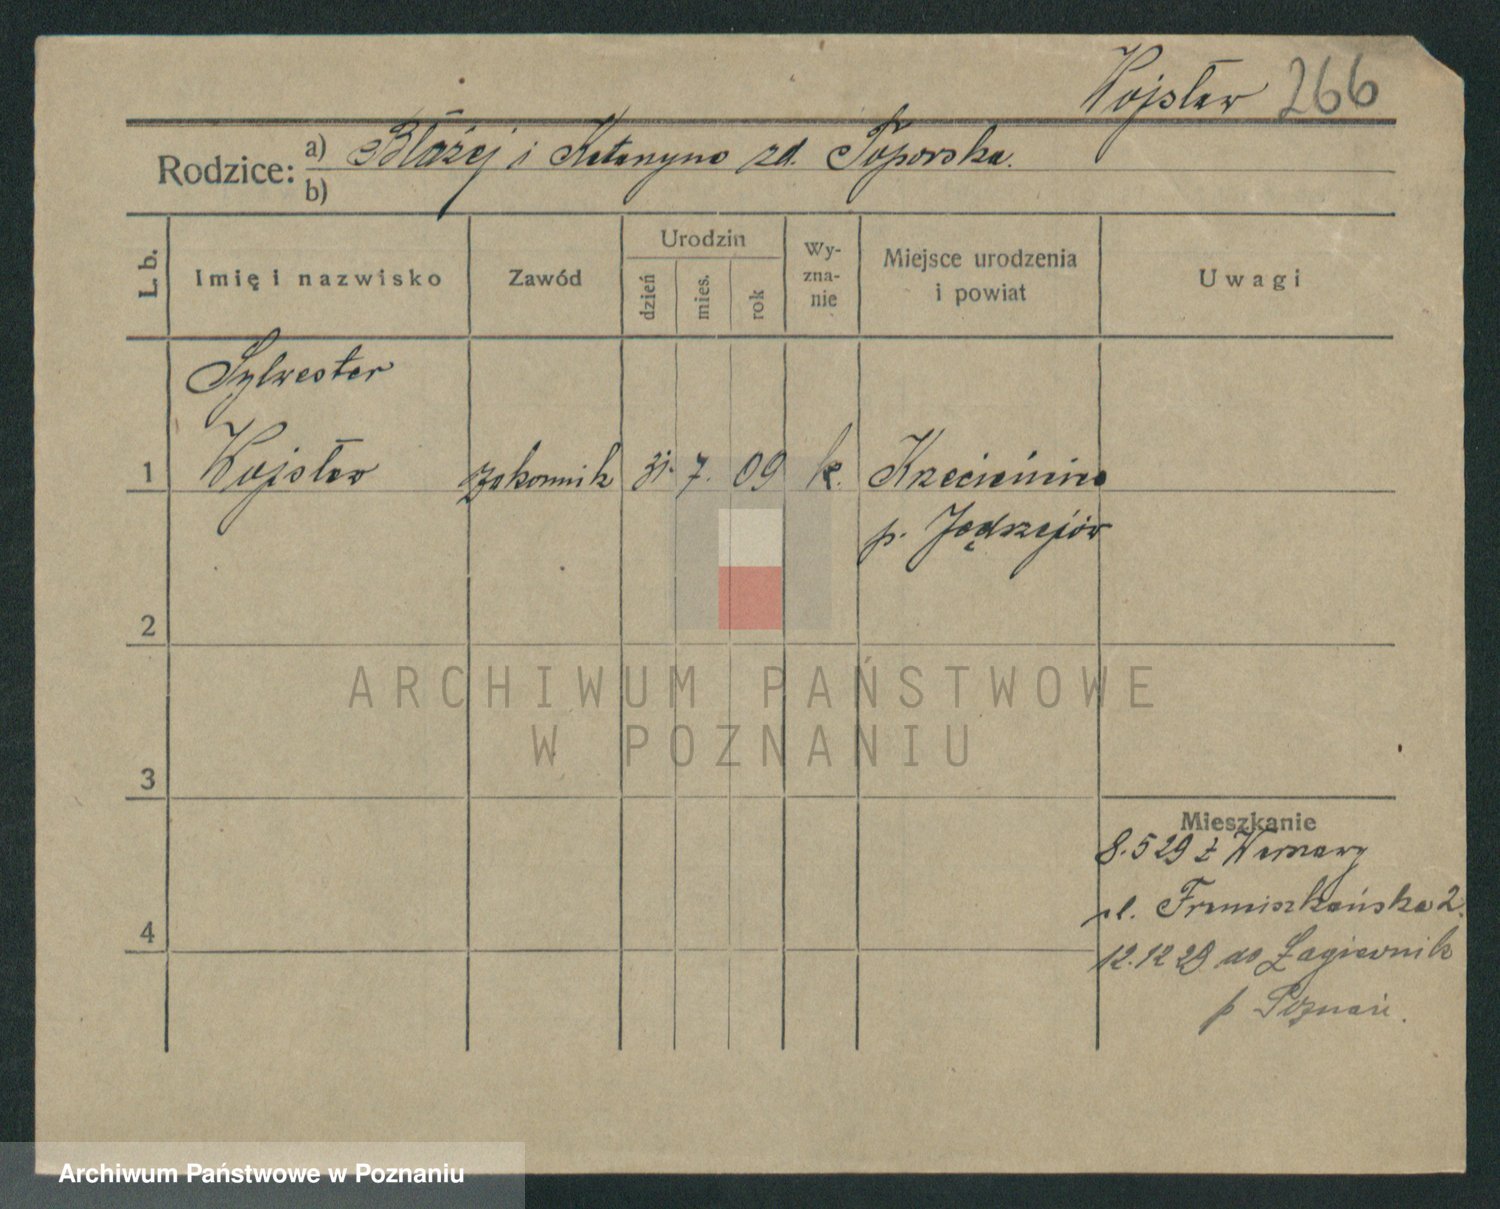 Wojsław 266
Rodzice: a) Błażej i Katarzyna zd. Toporska.
b)
L. b.
Imię i nazwisko
Zawód
Urodzin
dzień
mies.
rok
Wy-
zna-
nie
Miejsce urodzenia
i powiat
Uwagi
Sylwester
1 Wojsław zakonnik 31. 7. 09 k.
p. Jędrzejów
2
ARCHIWUM PAŃSTWOWE
W POZNANIU
3
Mieszkanie
8.5 29 z Warszawy
ul. Franciszkańska 2.
4
12.12 29 do Łagiewnik
p Poznań.
Archiwum Państwowe w Poznaniu